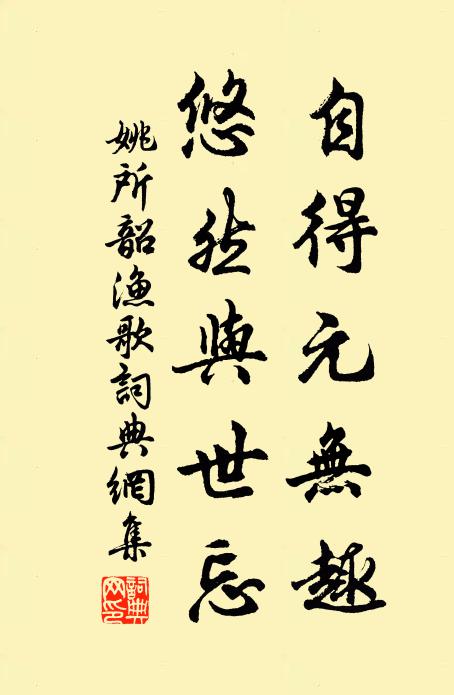 自得元無趣
悠然與世忘
姚所韶漁歌詞典網集
詞典網印